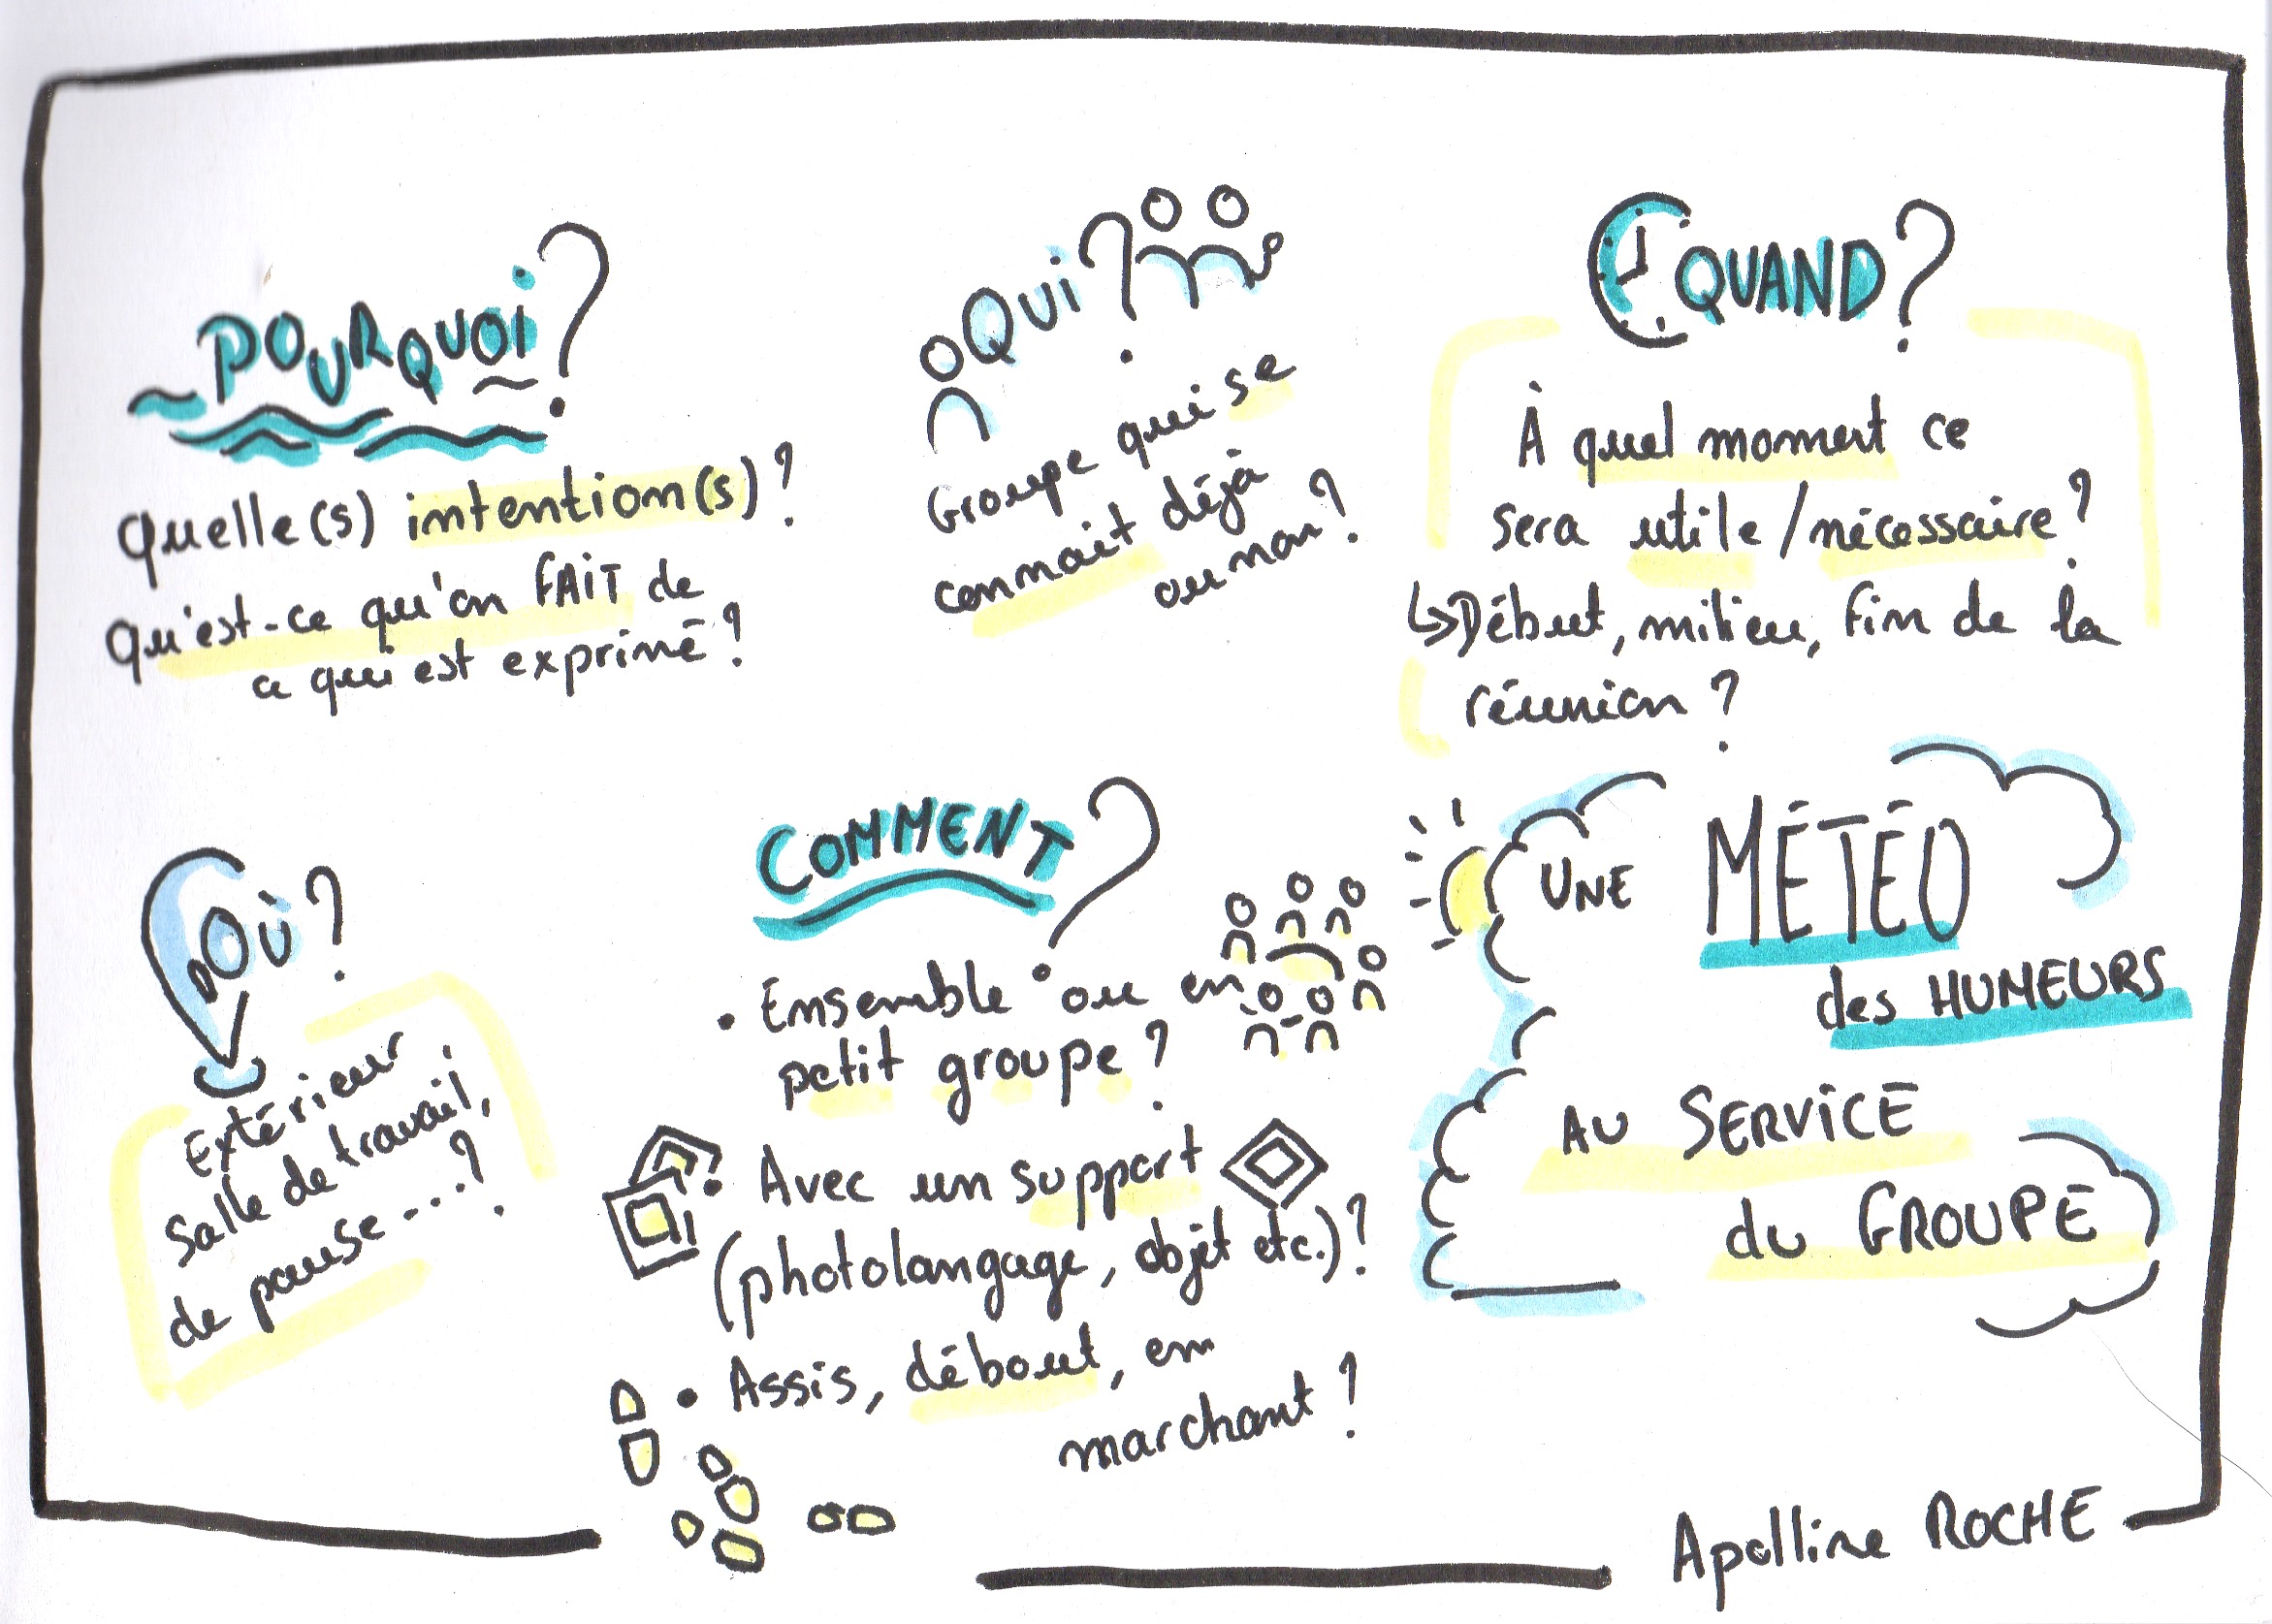 POURQUOI ?
Quelle(s) intention(s) ?
Qu'est-ce qu'on FAIT de
ce qui est exprimé ?
QUI ?
Groupe qui se
connait déjà
ou non ?
QUAND ?
À quel moment ce
sera utile/nécessaire ?
↳ Début, milieu, fin de la
réunion ?
OÙ ?
Extérieur
Salle de travail,
de pause...?
COMMENT ?
• Ensemble ou en
petit groupe ?
• Avec un support
(photolangage, objet etc.) ?
• Assis, débout, en
marchant ?
UNE MÉTÉO
des HUMEURS
AU SERVICE
du GROUPE
Apolline ROCHE